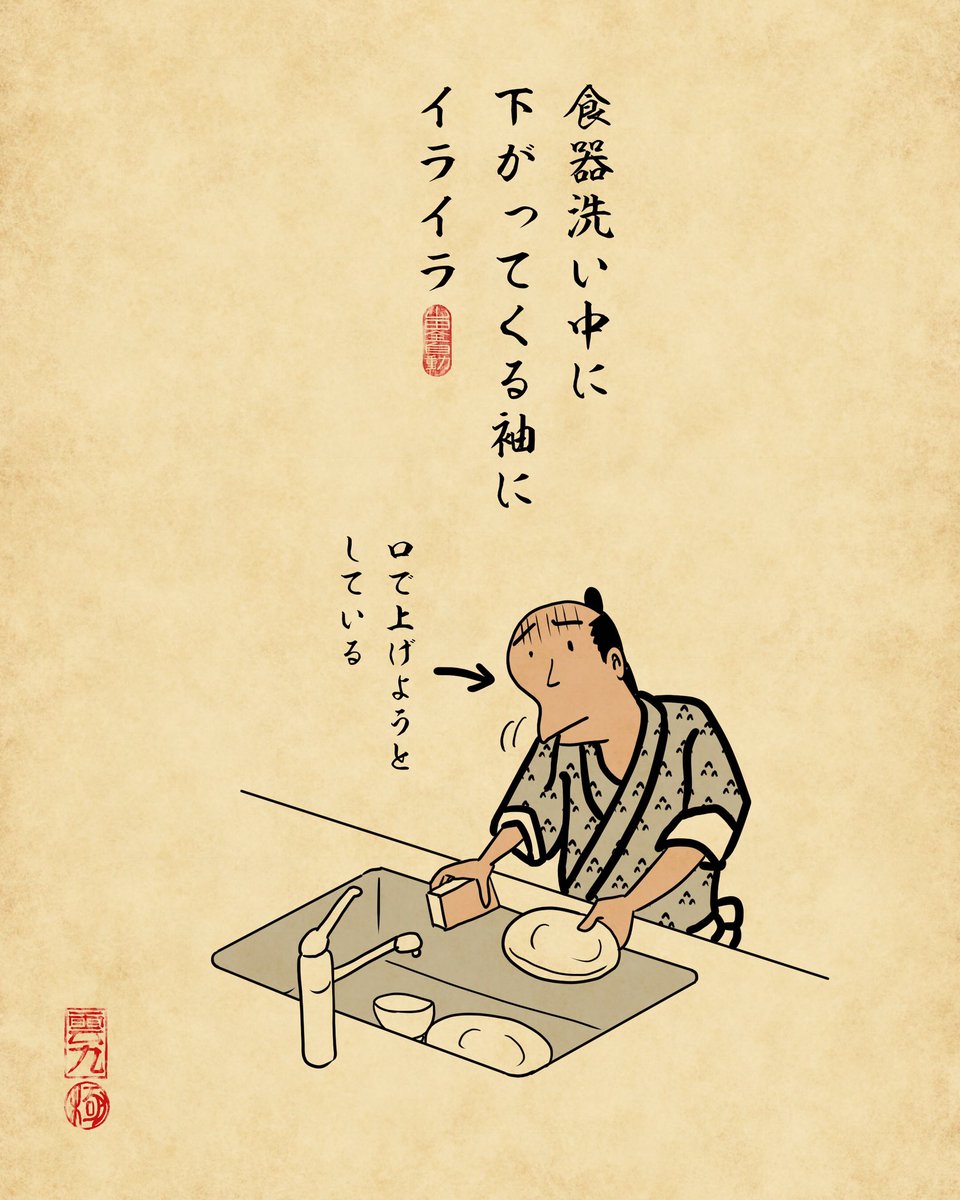 食器洗い中に
下がってくる袖に
イライラ
口で上げようと
している